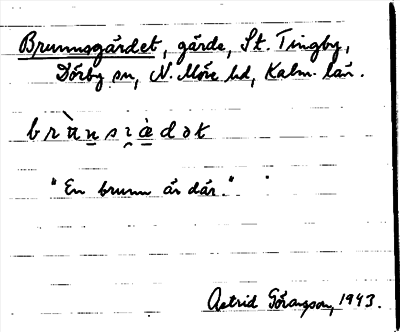 Brunnsgärdet, gärde, St. Tingby,
Dörby sn, N. Möre hd, Kalm. län.
"En brunn är där."
Astrid Göransson, 1943.